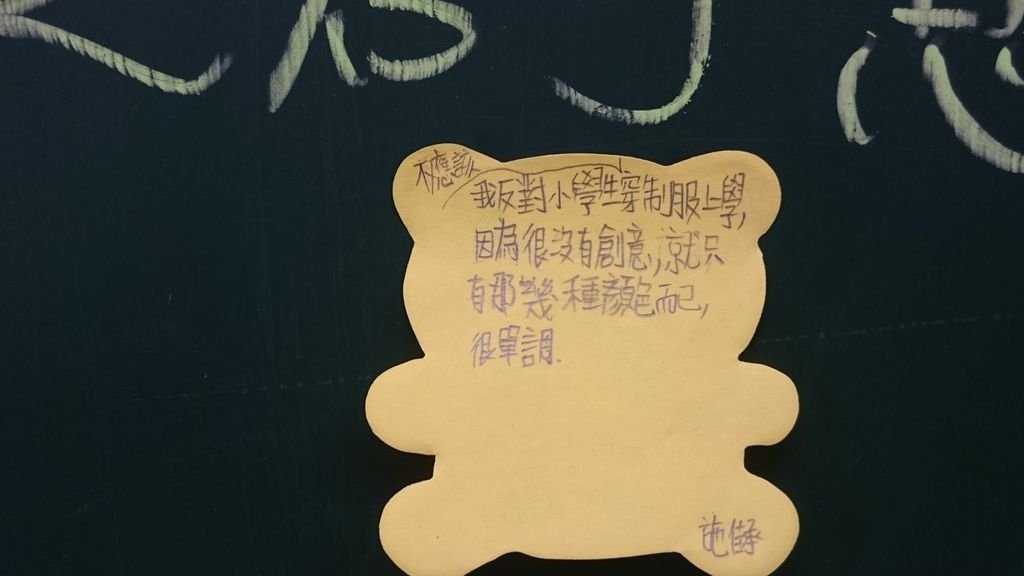 不應該
我反對小學生穿制服上學,
因為很沒有創意,就只
有那幾種顏色而已,
很單調.